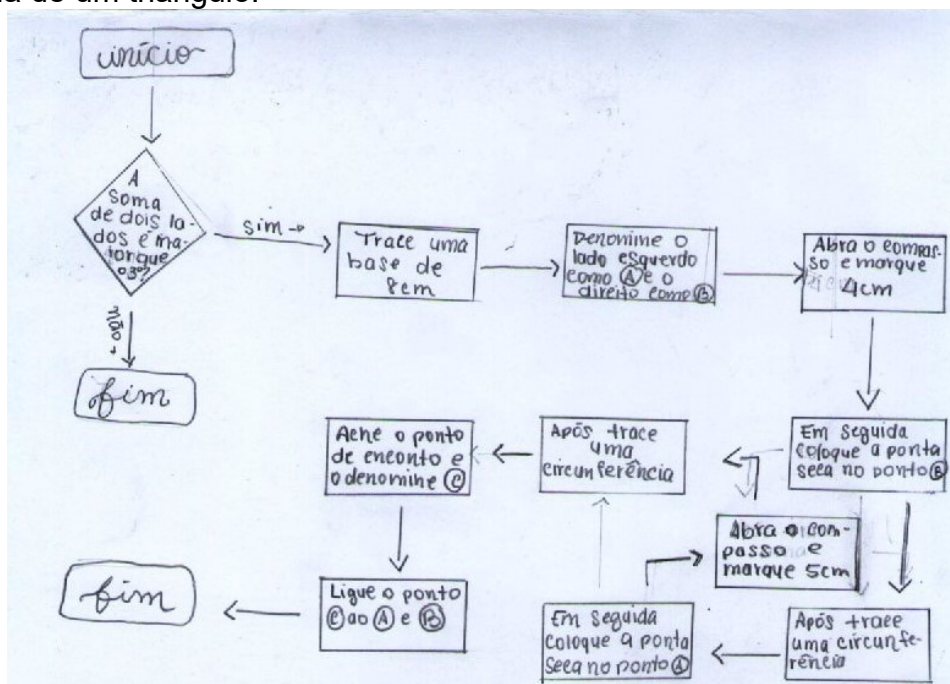 de um triângulo.
início
A
soma
de dois la-
dos é ma-
ior que
o 3º?
sim
não
fim
Trace uma
base de
8cm
Denomine o
lado esquerdo
como A e o
direito como B
Abra o compas-
so e marque
4cm
Em seguida
coloque a ponta
seca no ponto B
Após trace
uma circunfe-
rência
Em seguida
coloque a ponta
seca no ponto A
Abra o com-
passo e
marque 5cm
Após trace
uma
circunferência
Ache o ponto
de enconto e
o denomine C
Ligue o ponto
C ao A e B
fim